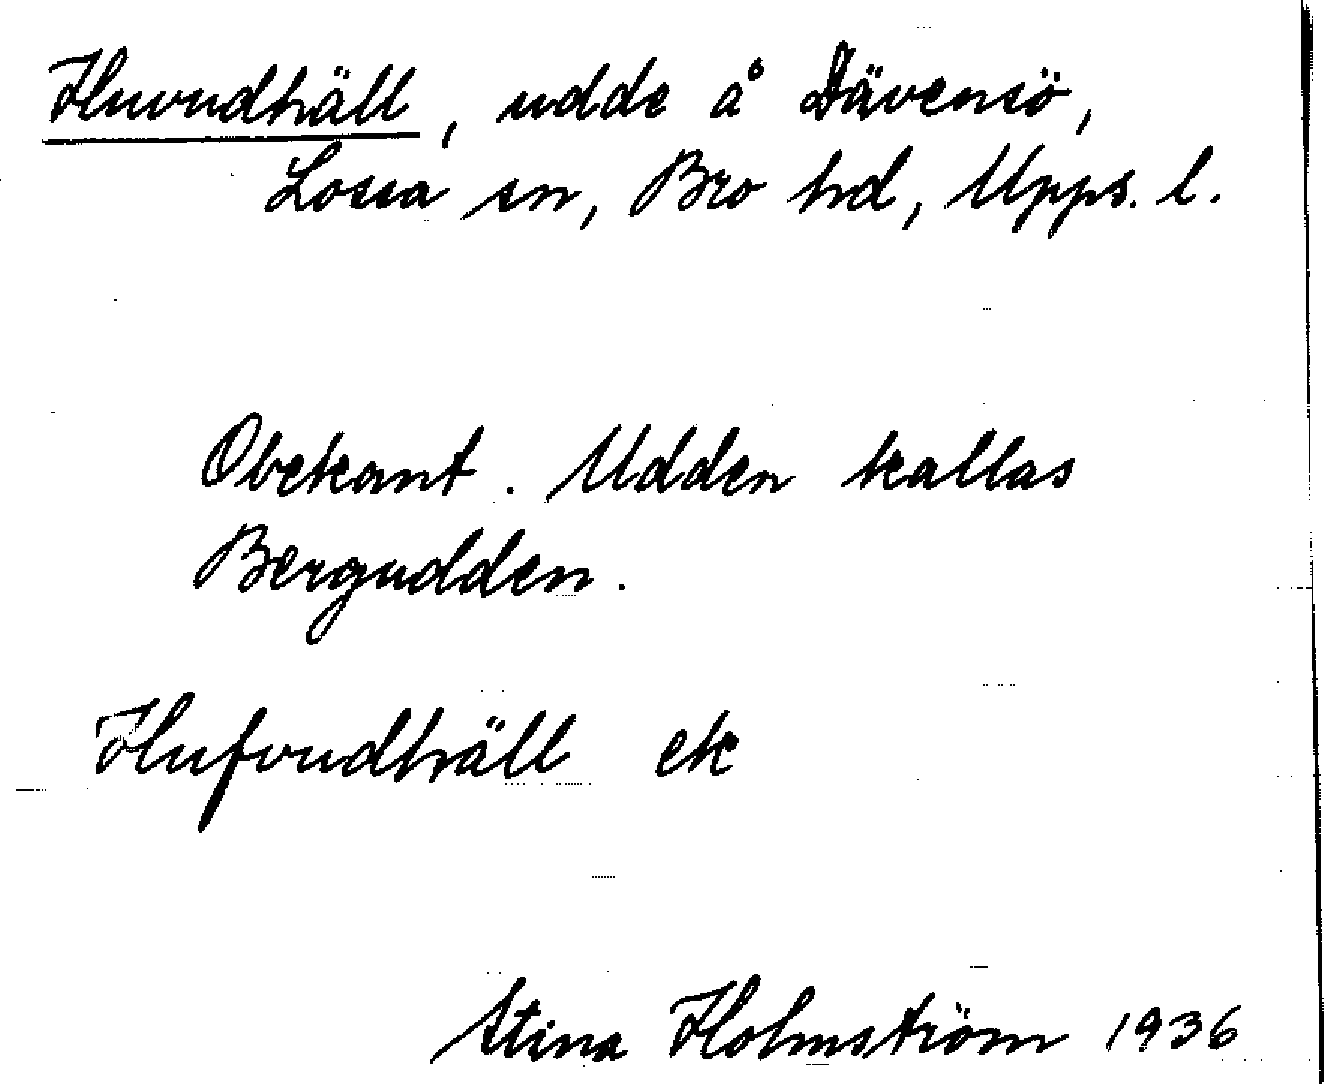 Huvudhäll, udde å Dävensö,
Lossa sn, Bro hd, Upps. l.
Obekant. Udden kallas
Bergudden.
Hufvudhäll ek
Stina Holmström 1936